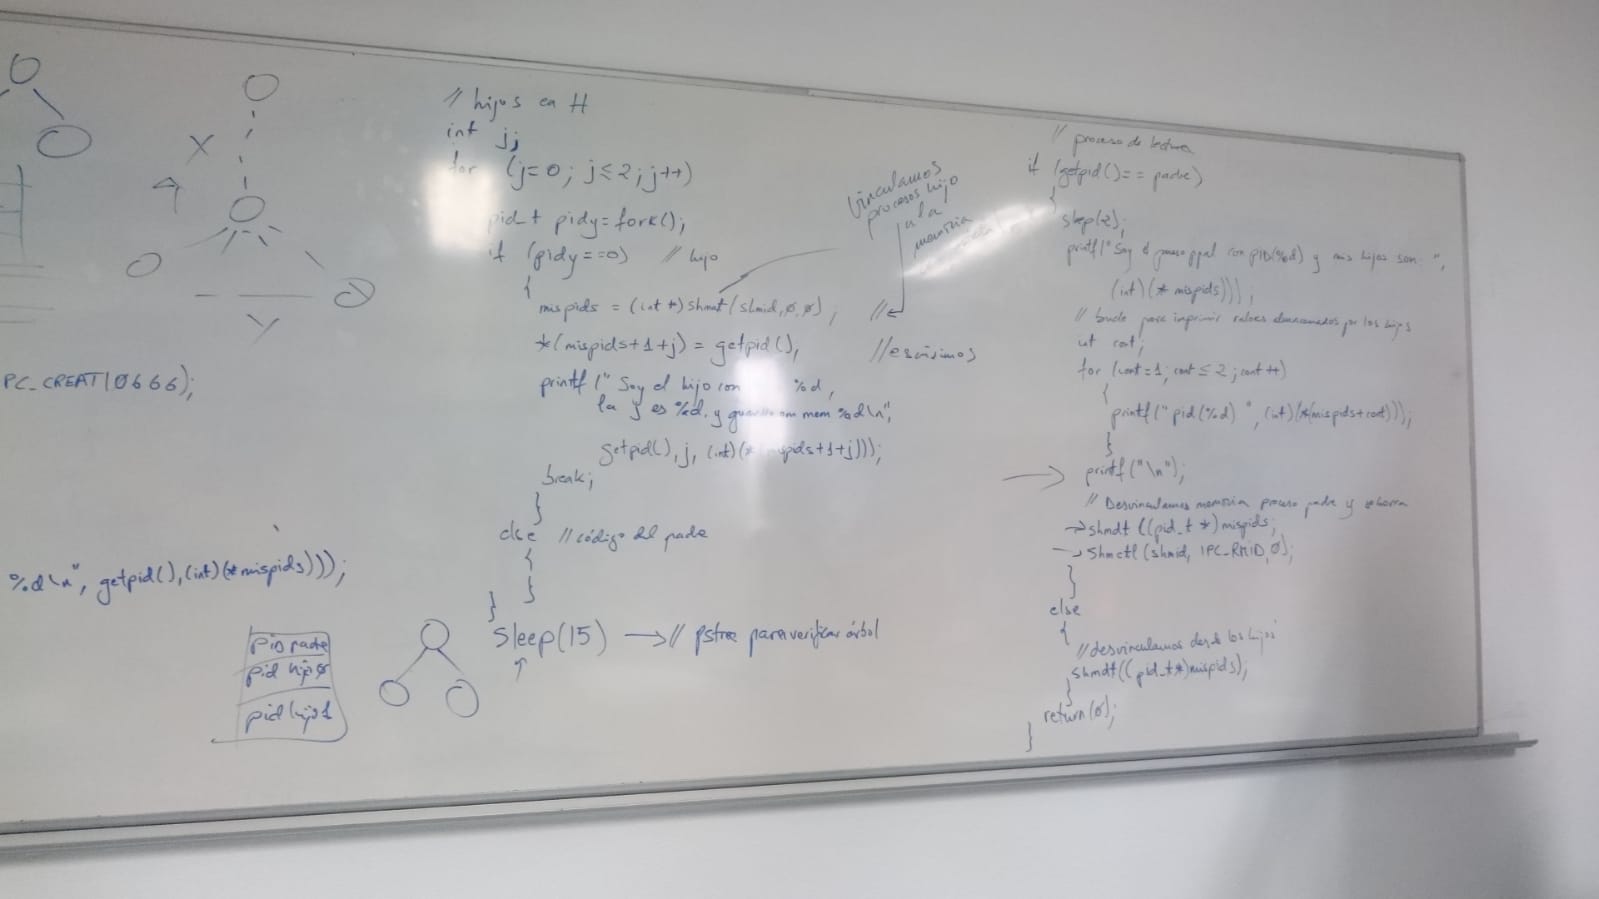 X
Y
PC_CREAT|0666);
%d\n", getpid(),(int)(*mispids)));
pid padre
pid hijo
pid hijo1
// hijos en H
int j;
for (j=0; j≤2; j++)
pid_t pidy=fork();
if (pidy==0) // hijo
{
mispids = (int*)shmat(shmid,0,0); //
*(mispids+1+j) = getpid(); //escribimos
printf(" Soy el hijo con %d,
la j es %d, y en mem %d\n",
getpid(), j, (int)(*(mispids+1+j)));
break;
}
else // código del padre
{
}
}
sleep(15) → // pstree para verificar árbol
vinculamos
procesos hijo
a la
memoria
// proceso de lectura
if (getpid()== padre)
{
sleep(2);
printf("Soy el proceso ppal con PID(%d) y mis hijos son: ",
(int)(*mispids)));
// bucle para imprimir valores almacenados por los hijos
int cont;
for (cont=1; cont≤2; cont++)
{
printf("pid(%d) ", (int)(*(mispids+cont)));
}
→ printf("\n");
// Desvinculamos memoria proceso padre y
→shmdt((pid_t *)mispids;
→shmctl(shmid, IPC_RMID,0);
}
else
{
// desvinculamos desde los hijos
shmdt((pid_t*)mispids);
}
return(0);
}